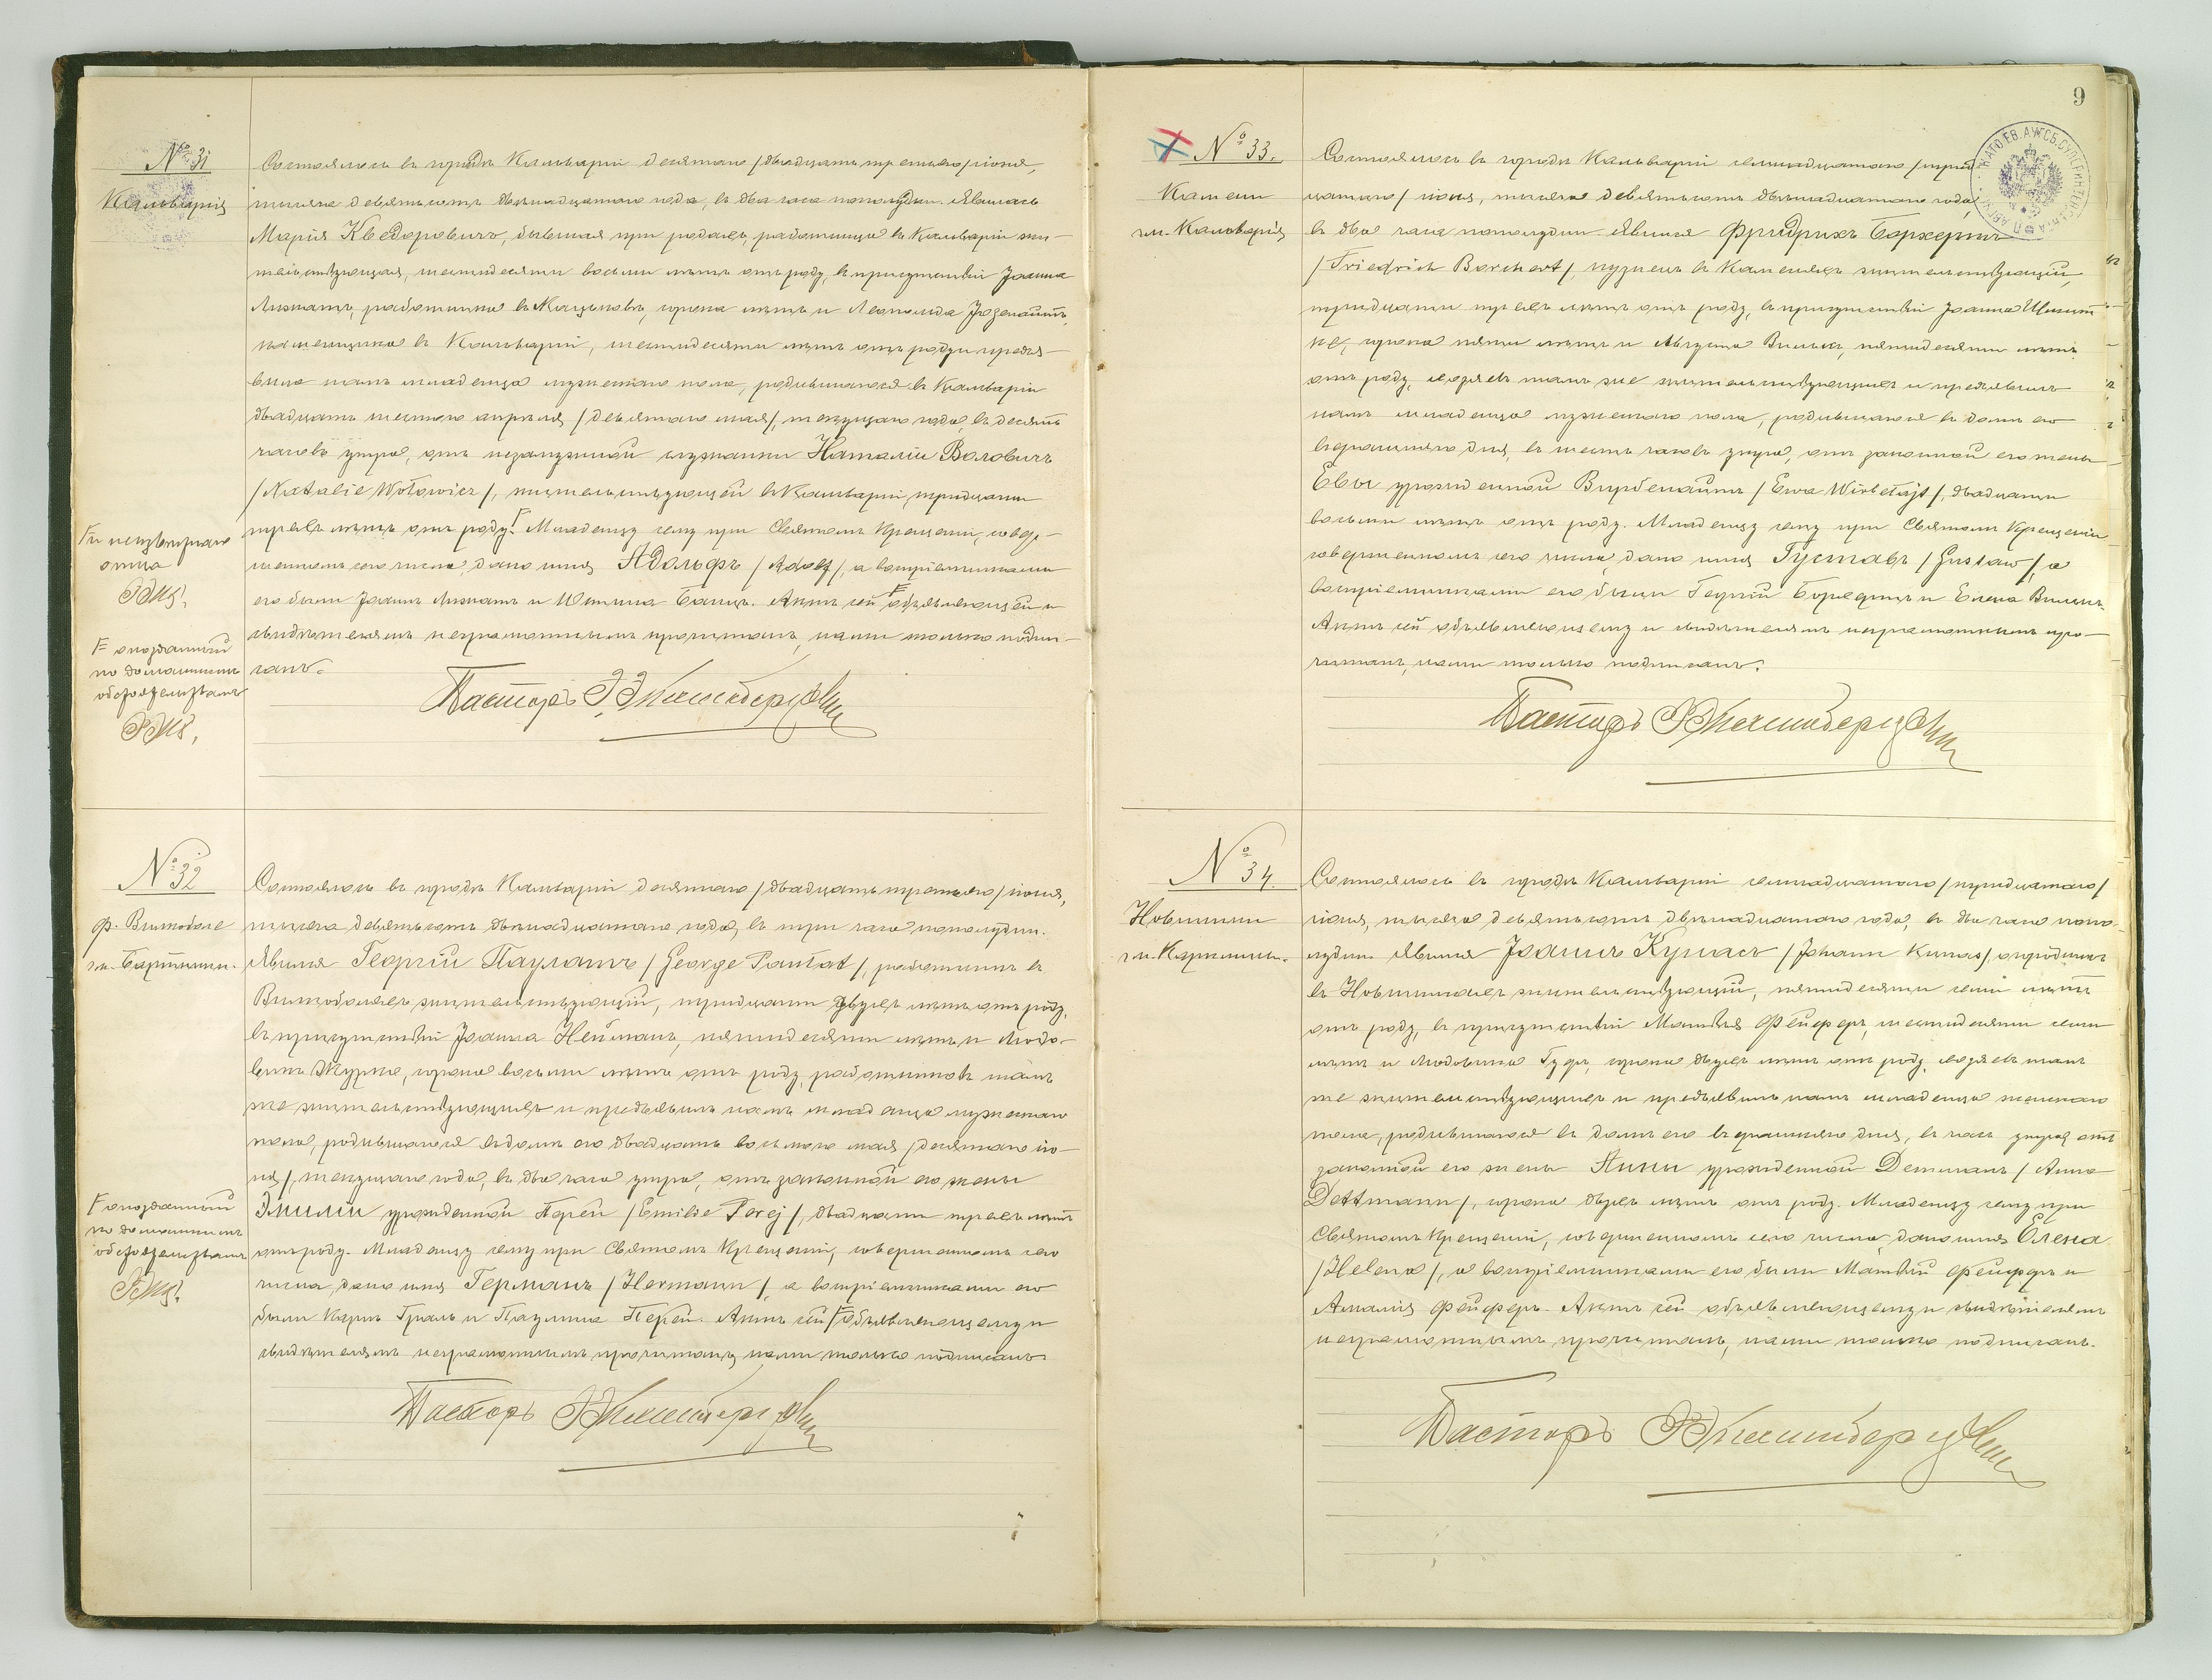 № 31
Кальварія
Состоялось въ городѣ Кальваріи десятаго /двадцать третьяго/ іюня,
тысяча девятьсотъ двѣнадцатаго года, въ два часа пополудни. Явилась
Марія Кведоровичъ, бывшая при родахъ, работница въ Кальваріи жи-
тельствующая, шестидесяти восьми лѣтъ отъ роду, въ присутствіи Іоанна
работника въ сорока лѣтъ и Леопольда
въ Кальваріи, шестидесяти лѣтъ отъ роду и предъя-
вила намъ младенца мужескаго пола, родившагося въ Кальваріи
двадцать шестого апрѣля /девятаго мая/, текущаго года, въ десять
часовъ утра, отъ незамужней служанки Наталіи Воловичъ
/Natalie Wołowicz/, жительствующей въ Кальваріи, тридцати
трехъ лѣтъ отъ роду. Младенцу сему при Святомъ Крещеніи, совер-
шенномъ сего числа, дано имя Адольфъ /Adolf/, а воспріемниками
его были Іоаннъ и Актъ сей объявляющей и
свидѣтелямъ неграмотнымъ прочитанъ, нами только подпи-
санъ.
и неизвѣстнаго
отца
опозданный
по домашнимъ
обстоятельствамъ
Пасторъ
№ 32
ф. Витоболе
гм. Бартники.
Состоялось въ городѣ Кальваріи десятаго /двадцать третьяго/ іюня,
тысяча девятьсотъ двѣнадцатаго года, въ три часа пополудни.
Явился Георгій Паулатъ /George Paulat/, работникъ въ
Витоболяхъ жительствующій, тридцати двухъ лѣтъ отъ роду,
въ присутствіи Іоанна Нейманъ, пятидесяти лѣтъ и Людо-
вика сорока восьми лѣтъ отъ роду, работниковъ тамъ
же жительствующихъ и предъявилъ намъ младенца мужескаго
пола, родившагося въ домѣ его двадцать восьмого мая /десятаго ію-
ня/, текущаго года, въ два часа утра, отъ законной его жены
Эмиліи урожденной Порей /Emilie Porej/, двадцати трехъ лѣтъ
отъ роду. Младенцу сему при Святомъ Крещеніи, совершенномъ сего
числа, дано имя Германъ /Hermann/, а воспріемниками его
были Карлъ и Паулина Порей. Актъ сей объявляющему и
свидѣтелямъ неграмотнымъ прочитанъ, нами только подписанъ.
опозданный
по домашнимъ
обстоятельствамъ
Пасторъ
9
№ 33.
Камени
гм. Кальварія
Состоялось въ городѣ Кальваріи семнадцатаго /трид-
цатаго/ іюня, тысяча девятьсотъ двѣнадцатаго года,
въ два часа пополудни. Явился Фридрихъ Борхертъ
/Friedrich Borchert/, кузнецъ въ Каменяхъ жительствующій,
тридцати трехъ лѣтъ отъ роду, въ присутствіи Іоанна
сорока пяти лѣтъ и Августа пятидесяти лѣтъ
отъ роду, хозяевъ тамъ же жительствующихъ и предъявилъ
намъ младенца мужескаго пола, родившагося въ домѣ его
вчерашняго дня, въ шесть часовъ утра, отъ законной его жены
Евы урожденной Вирбелайтъ /Ewa Wirbełajt/, двадцати
восьми лѣтъ отъ роду. Младенцу сему при Святомъ Крещеніи
совершенномъ сего числа, дано имя Густавъ /Gustaw/, а
воспріемниками его были и Елена
Актъ сей объявляющему и свидѣтелямъ неграмотнымъ про-
читанъ, нами только подписанъ.
Пасторъ
№ 34.
Новинники
гм.
Состоялось въ городѣ Кальваріи семнадцатаго /тридцатаго/
іюня, тысяча девятьсотъ двѣнадцатаго года, въ два часа попо-
лудни. Явился Іоаннъ Кунасъ /Johann Kunas/,
въ жительствующій, пятидесяти семи лѣтъ
отъ роду, въ присутствіи Матвѣя Фейферъ, шестидесяти семи
лѣтъ и Людовика сорока двухъ лѣтъ отъ роду, хозяевъ тамъ
же жительствующихъ и предъявилъ намъ младенца женскаго
пола, родившагося въ домѣ его вчерашняго дня, въ часъ утра, отъ
законной его жены Анны урожденной Детманъ /Anna
Dettmann/, сорока двухъ лѣтъ отъ роду. Младенцу сему при
Святомъ Крещеніи, совершенномъ сего числа, дано имя Елена
/Helena/, а воспріемниками его были Матвѣй Фейферъ и
Амалія Фейферъ. Актъ сей объявляющему и свидѣтелямъ
неграмотнымъ прочитанъ, нами только подписанъ.
Пасторъ